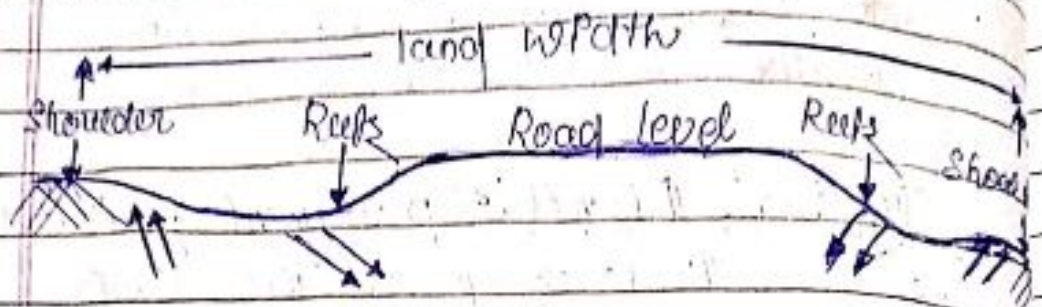 land width
Shoulder Reefs Road level Reefs
Shou